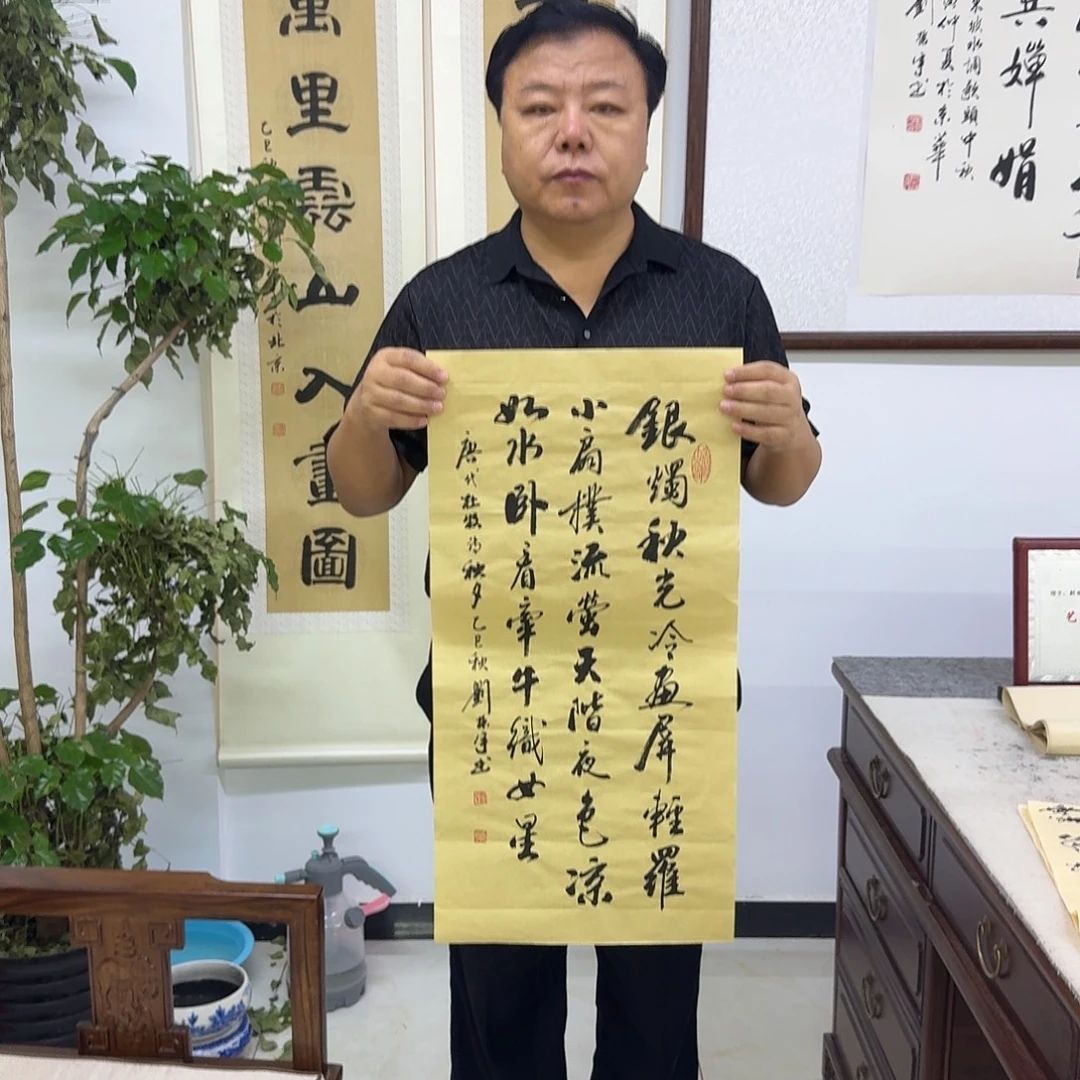 共嬋娟
東坡水調歌頭中秋
寅仲夏於京華
劉
銀燭秋光冷畫屏輕羅
小扇撲流螢天階夜色凉
如水卧看牽牛織女星
唐代杜牧詩秋夕乙巳秋劉
萬里雲山入畫圖
乙巳秋
於北京